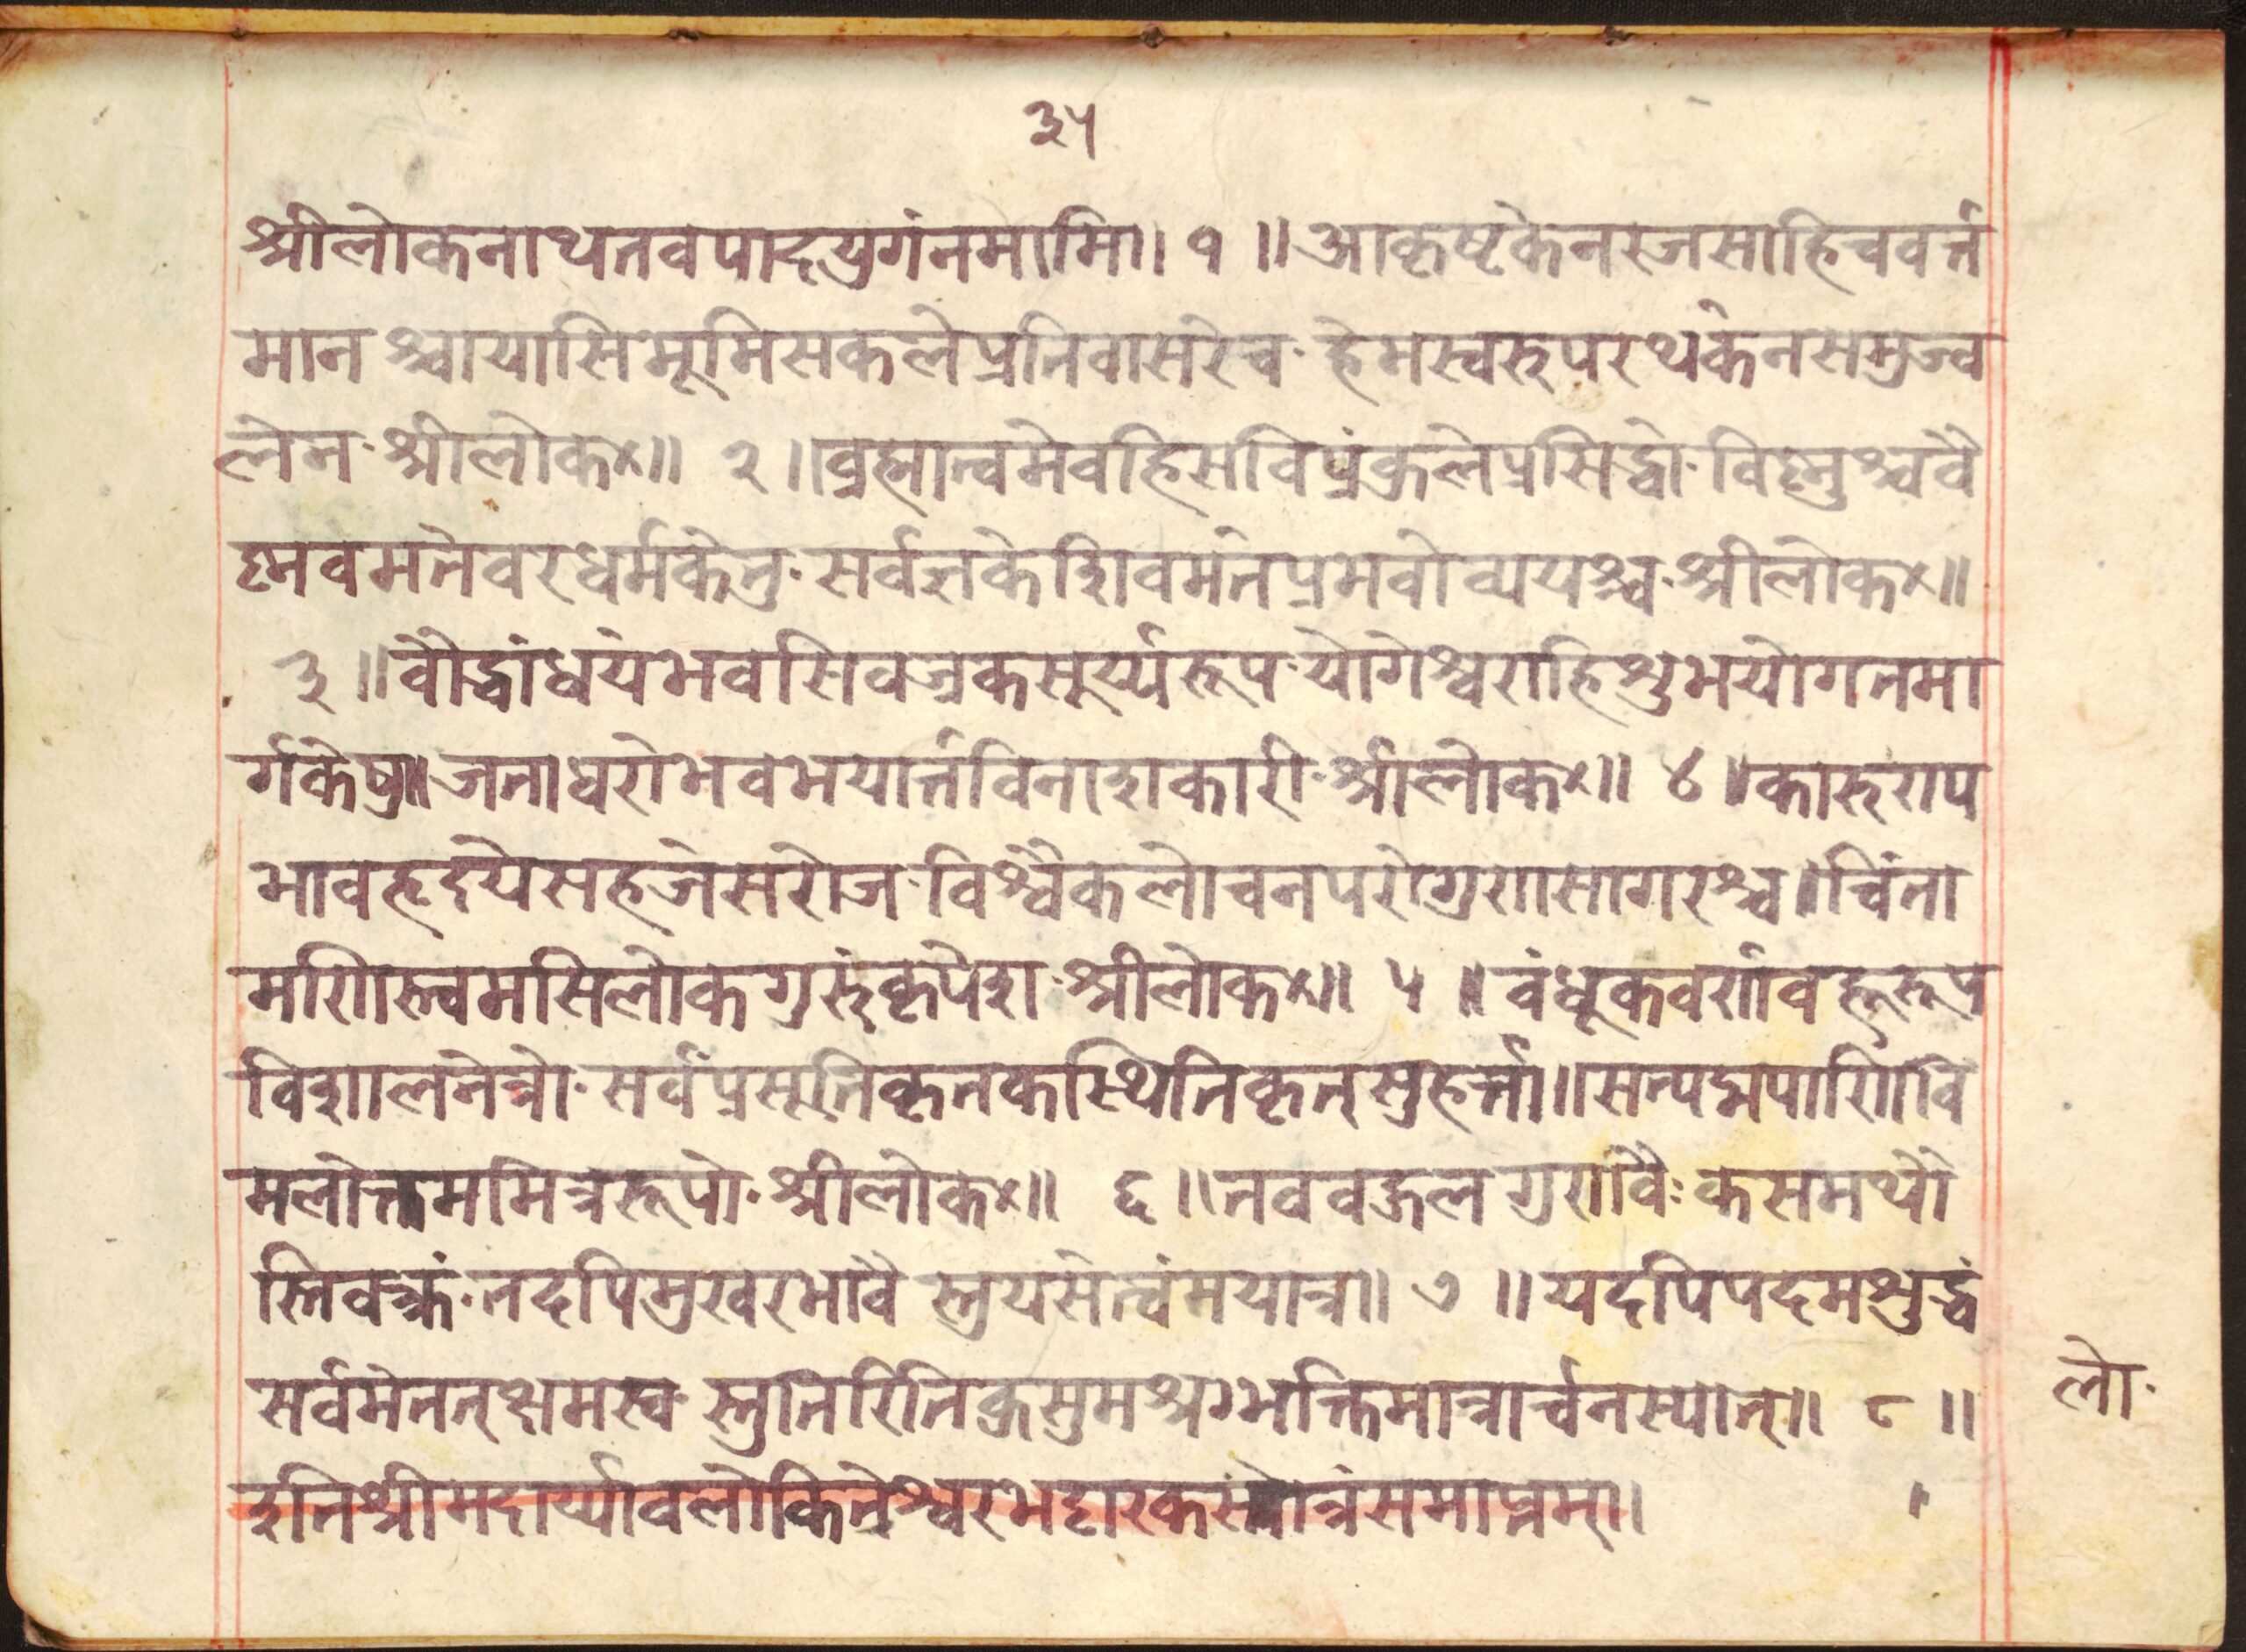 ३५
श्रीलोकनाथतवपादयुगंनमामि।१॥आकृष्टकेनरजसाहिचवर्त्त
मानश्चायासिभूमिसकलेप्रतिवासरेच·हेमस्वरुपरथकेनसमुज्व
लेन·श्रीलोक×॥२॥व्रह्मात्वमेवहिसविप्रंकुलेप्रसिद्धो·विष्नुश्चवै
ष्नवमतेवरधर्मकेतु·सर्वज्ञकेशिवमतेप्रभवोव्ययश्च·श्रीलोक×॥
३॥वौद्धांधयंभवसिवज्रकसूर्य्यरूप·योगेश्वराहिशुभयोगतमा
र्गकेषु॥जनाधरोभवभयार्त्तविनाशकारी·श्रीलोक×॥४॥कारुणप
भावहृदयेसहजेसरोज·विश्वैकलोचनपरोगुणसागरश्च॥चिंता
मणिस्त्वमसिलोकगुरुंकृपेश·श्रीलोक×॥५॥वंधूकवर्णवहूरूप
विशालनेत्रो·सर्वप्रसूतिकृतकस्थितिकृत्सुहर्त्ता॥सत्पद्मपाणिवि
मलोत्तममित्ररूपो·श्रीलोक×॥६॥तववद्गलगुणवैःकसमर्थो
स्तिवक्तं·तदपिमुखरभावैस्तुयसेत्वंमयात्र॥७॥यदपिपदमशुद्धं
सर्वमेतत्क्षमस्व·स्तुतिरितिकुसुमश्रग्भक्तिमात्रार्चनस्यात्॥८॥
इतिश्रीमदार्य्यावलोकितेश्वरभट्टारकस्तोत्रंसमाप्तम्।
लो·